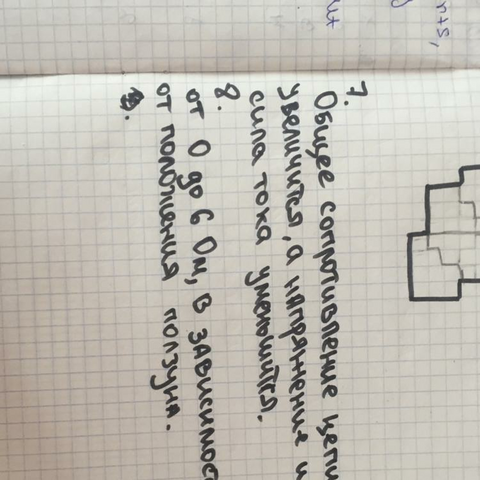 7.
Общее сопротивление цепи
увеличится, а напряжение и
сила тока уменьшится.
8.
от 0 до 6 Ом, в зависимос
от положения ползуна.
r+s,